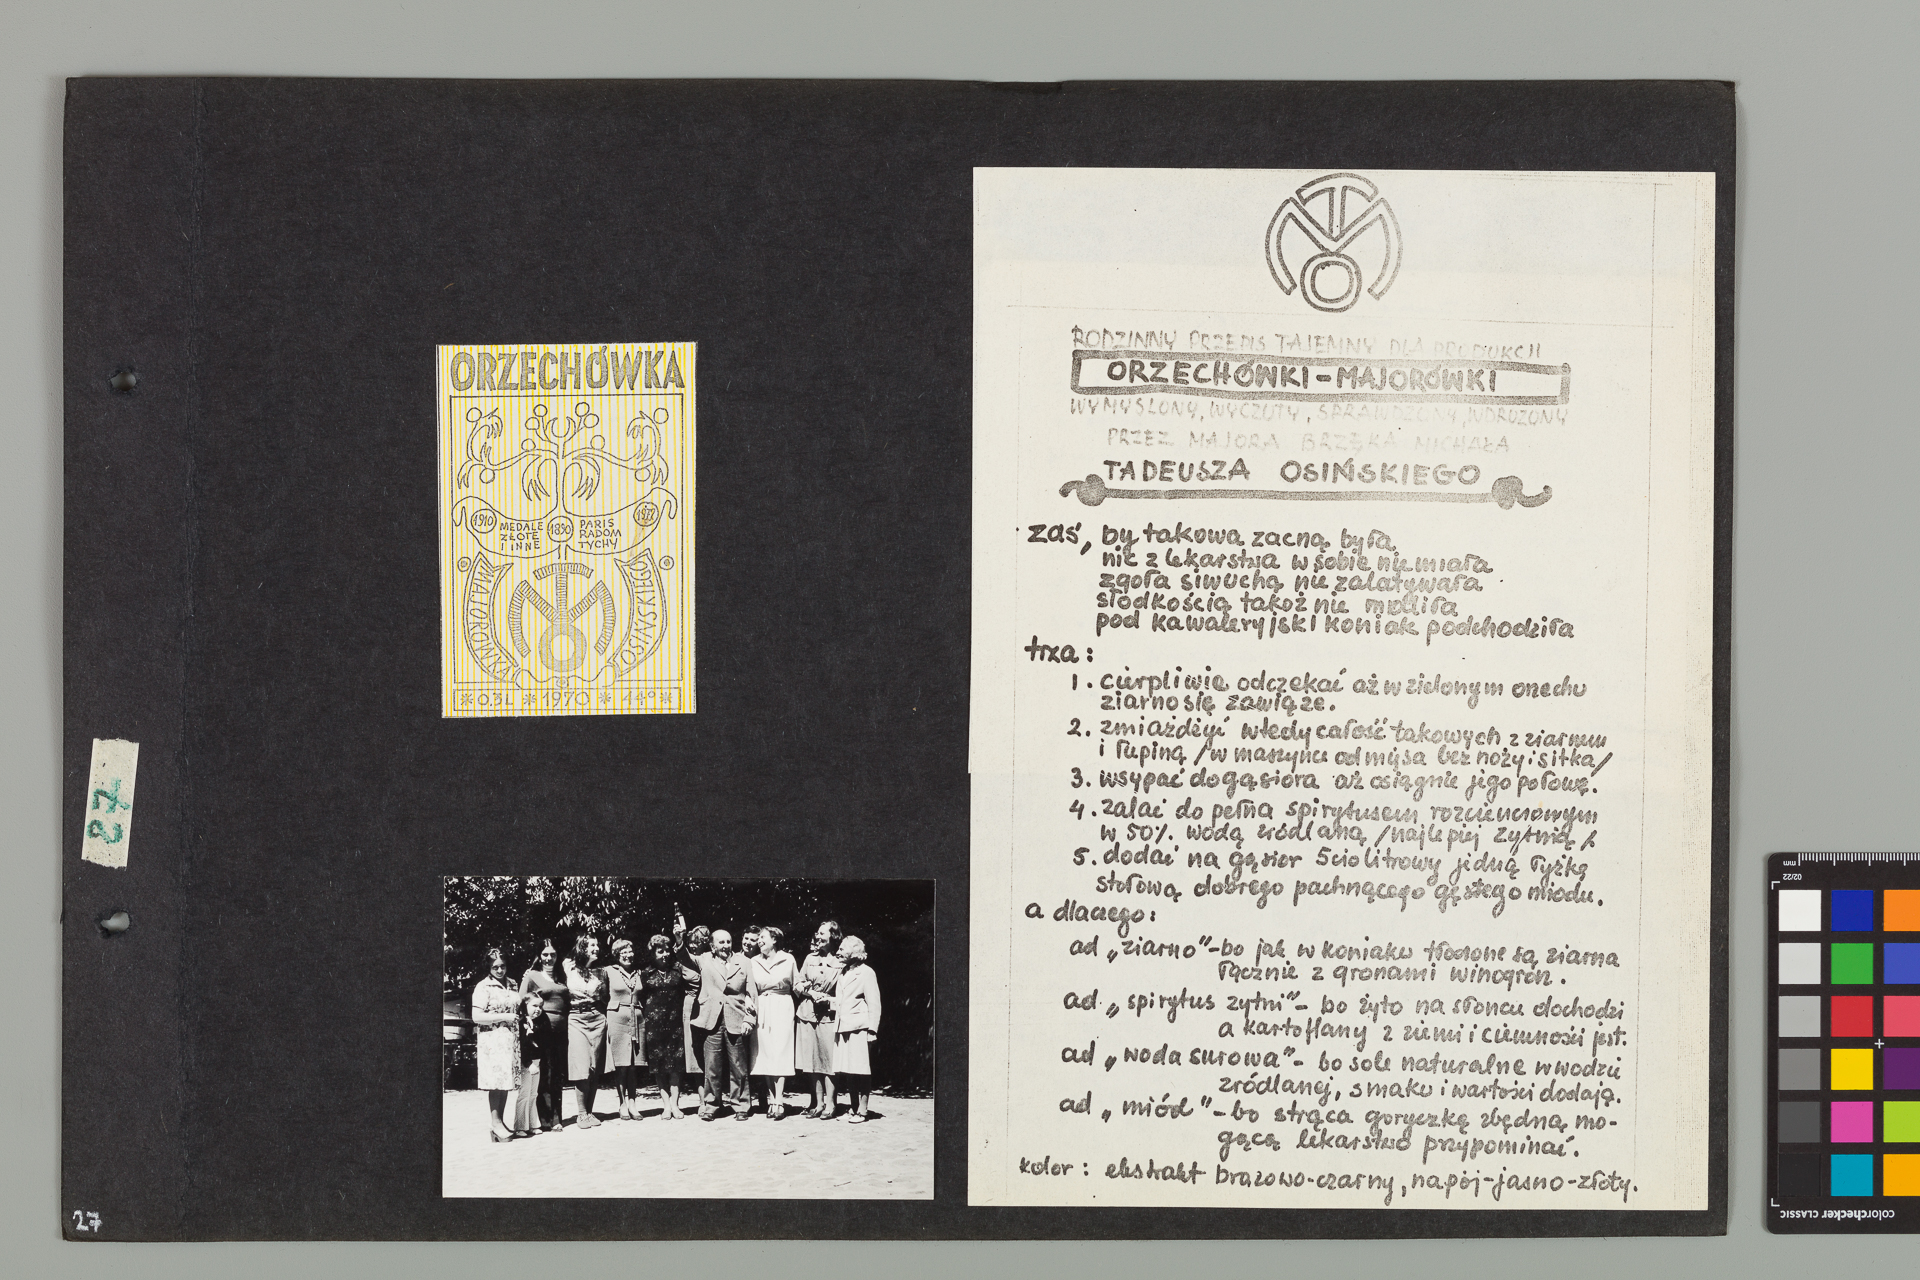 ORZECHÓWKA
1910
MEDALE
ZŁOTE
I INNE
1890
PARIS
RADOM
TYCHY
MAJORÓWKA
TM
O
OSIŃSKIEGO
* 0,3L * 1970 * 44° *
27
27
TM
O
RODZINNY PRZEPIS TAJEMNY DLA PRODUKCJI
ORZECHÓWKI-MAJORÓWKI
WYMYŚLONY, WYCZUTY, SPRAWDZONY, WDROŻONY
PRZEZ MAJORA BRZĘKA MICHAŁA
TADEUSZA OSIŃSKIEGO
zaś, by takowa zacną była
nic z lekarstwa w sobie nie miała
zgoła siwuchą nie zalatywała
słodkością takoż nie mdliła
pod kawaleryjski koniak podchodziła
trza:
1. cierpliwie odczekać aż w zielonym orzechu
ziarno się zawiąże.
2. zmiażdżyć wtedy całość takowych z ziarnem
i łupiną /w maszynce od mięsa bez noży i sitka/
3. wsypać do gąsiora aż osiągnie jego połowę.
4. zalać do pełna spirytusem rozcieńczonym
w 50% wodą źródlaną /najlepiej żytnią/
5. dodać na gąsior 5cio litrowy jedną łyżkę
stołową dobrego pachnącego gęstego miodu.
a dlaczego:
ad „ziarno"-bo jak w koniaku tłoczone są ziarna
łącznie z gronami winogron.
ad „spirytus żytni"- bo żyto na słońcu dochodzi
a kartoflany z ziemi i ciemności jest.
ad „woda surowa"- bo sole naturalne w wodzie
źródlanej, smaku i wartości dodają.
ad „miód"-bo strąca goryczkę zbędną mo-
gącą lekarstwo przypominać.
kolor: ekstrakt brązowo-czarny, napój-jasno-złoty.
mm
02/22
colorchecker CLASSIC